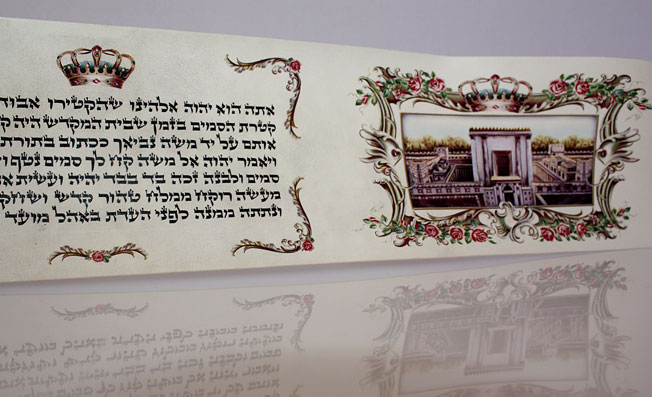 אתה הוא יהוה אלהינו שהקטירו
קטרת הסמים בזמן שבית המקדש היה
אותם על יד משה נביאך ככתוב
ויאמר יהוה אל משה קח לך סמים נטף
סמים ולבנה זכה בד בבד יהיה ועשית
מעשה רוקח ממלח טהור קדש
ונתתה ממנה לפני העדת באהל מועד